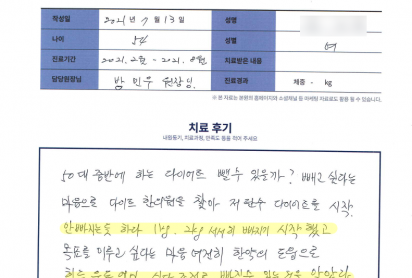 작성일 2021년 7월 13일 성명
나이 54 성별 여
진료기간 2021. 2월 - 2021. 8월 치료받은 내용
담당원장님 밤 민우 원장님 진료경과 체중 - kg
※ 본 자료는 본원의 홈페이지와 소셜채널 등 마케팅 자료로도 활용 될 수 있습니다.
치료 후기
내원동기, 치료과정, 만족도 등을 적어 주세요
50대 중반에 하는 다이어트 뺄수 있을까? 빼고 싶다는
마음으로 다이트 한의원을 찾아 저탄수 다이어트를 시작.
안빠지는듯 하다 1kg, 2kg 서서히 빠지기 시작 했고
목표를 이루고 싶다는 마음 여전히 한약의 도움으로